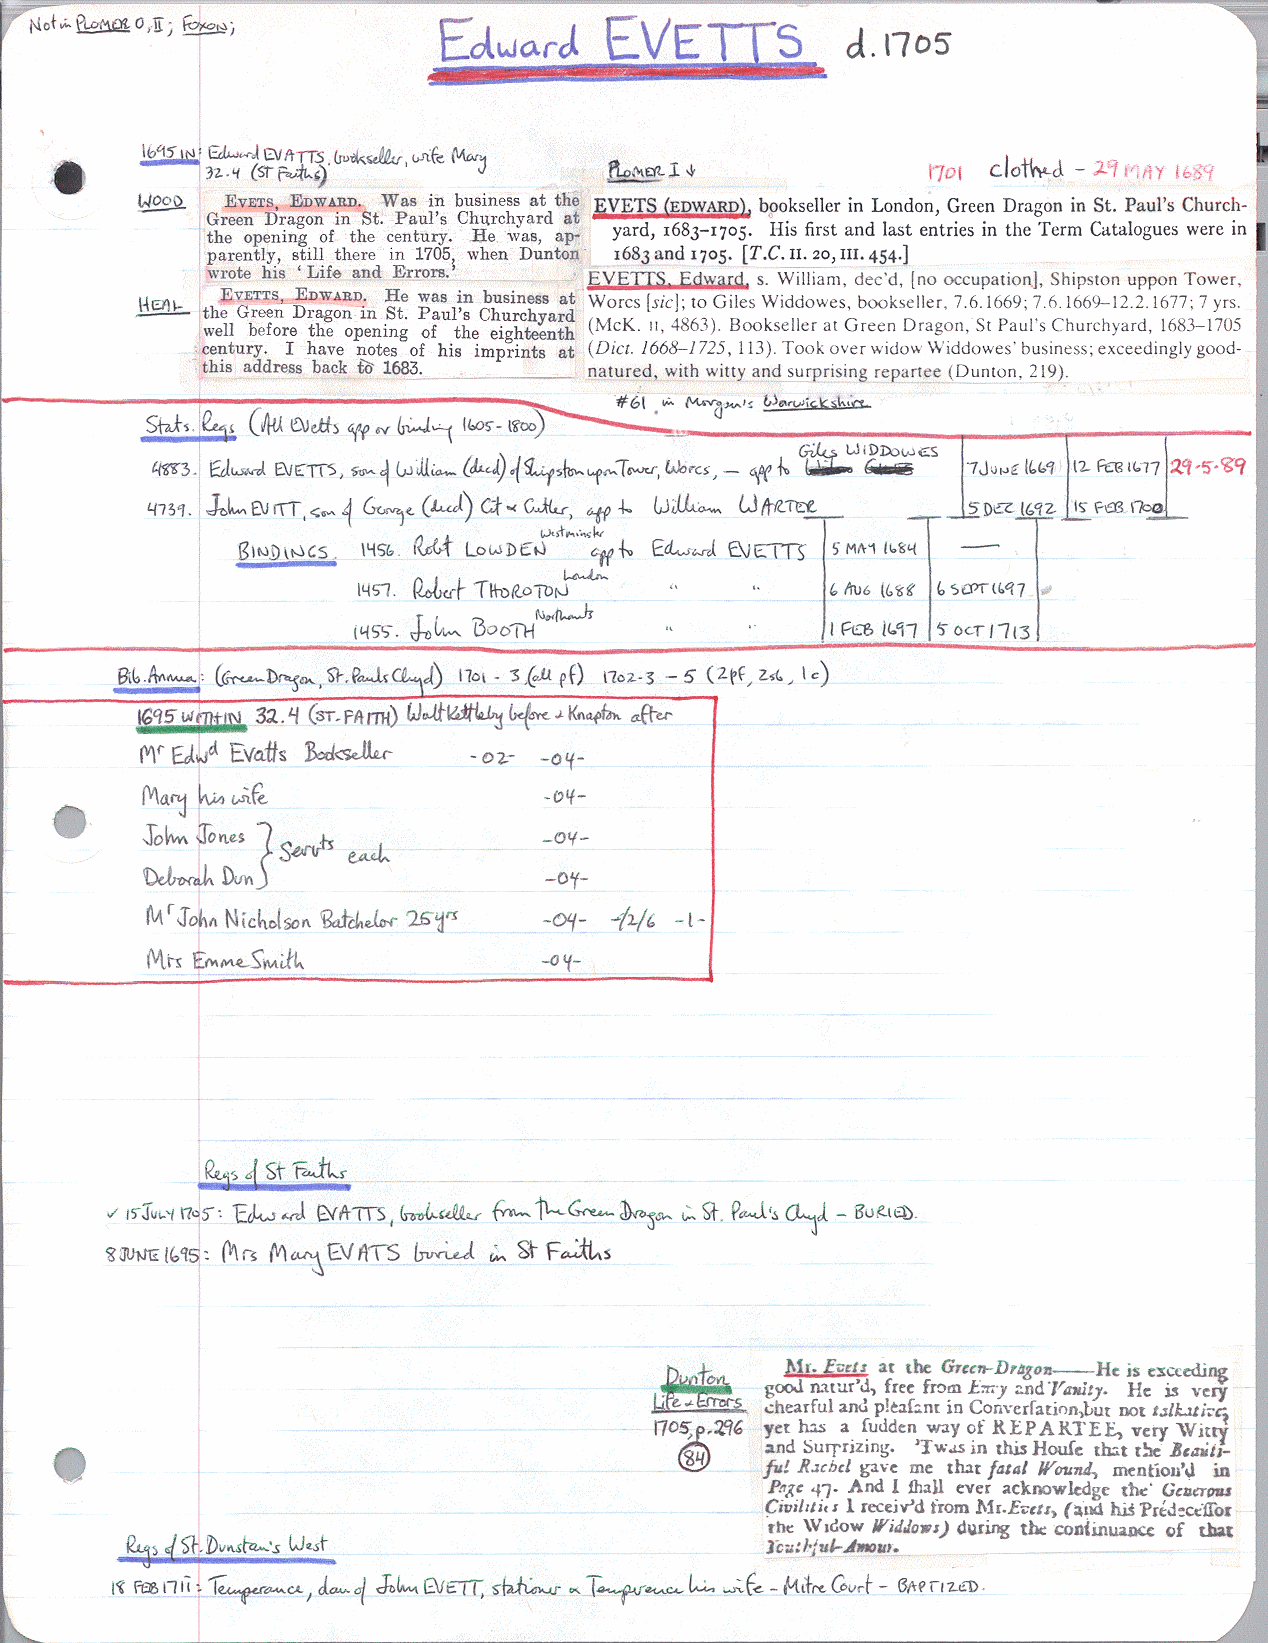 Not in PLOMER O, II; FOXON;
Edward EVETTS d. 1705
1695 IN: Edward EVATTS, bookseller, wife Mary
32.4 (St Faiths)
PLOMER I ↓
1701 clothed - 29 MAY 1689
WOOD
EVETS, EDWARD. Was in business at the
Green Dragon in St. Paul's Churchyard at
the opening of the century. He was, ap-
parently, still there in 1705, when Dunton
wrote his 'Life and Errors.'
EVETS (EDWARD), bookseller in London, Green Dragon in St. Paul's Church-
yard, 1683–1705. His first and last entries in the Term Catalogues were in
1683 and 1705. [T.C. II. 20, III. 454.]
HEAL
EVETTS, EDWARD. He was in business at
the Green Dragon in St. Paul's Churchyard
well before the opening of the eighteenth
century. I have notes of his imprints at
this address back to 1683.
EVETTS, Edward, s. William, dec'd, [no occupation], Shipston uppon Tower,
Worcs [sic]; to Giles Widdowes, bookseller, 7.6.1669; 7.6.1669–12.2.1677; 7 yrs.
(McK. II, 4863). Bookseller at Green Dragon, St Paul's Churchyard, 1683–1705
(Dict. 1668–1725, 113). Took over widow Widdowes' business; exceedingly good-
natured, with witty and surprising repartee (Dunton, 219).
#61 in Morgan's Warwickshire
Stats. Regs (All Evetts app or binding 1605-1800)
4883. Edward EVETTS, son of William (decd) of Shipston upon Tower, Worcs, — app to Giles WIDDOWES 7 JUNE 1669 12 FEB 1677 29-5-89
4739. John EVITT, son of George (decd) Cit & Cutler, app to William WARTER 5 DEC 1692 15 FEB 1700
BINDINGS 1456. Robt LOWDEN Westminster app to Edward EVETTS 5 MAY 1684 —
1457. Robert THOROTON London " " 6 AUG 1688 6 SEPT 1697
1455. John BOOTH Northants " " 1 FEB 1697 5 OCT 1713
Bib. Annua: (Green Dragon, St. Pauls Chyd) 1701 - 3 (all pf) 1702-3 - 5 (2pf, 2sb, 1c)
1695 WITHIN 32.4 (ST. FAITH) Walt Kettleby before & Knapton after
Mr Edwd Evatts Bookseller -02- -04-
Mary his wife -04-
John Jones } Servts each -04-
Deborah Dun } -04-
Mr John Nicholson Batchelor 25 yrs -04- -/2/6 -1-
Mrs Emme Smith -04-
Regs of St Faiths
✓ 15 JULY 1705: Edward EVATTS, bookseller from the Green Dragon in St. Paul's Chyd - BURIED.
8 JUNE 1695: Mrs Mary EVATS buried in St Faiths
Dunton
Life & Errors
1705, p. 296
84
Mr. Evets at the Green-Dragon——He is exceeding
good natur'd, free from Envy and Vanity. He is very
chearful and pleasant in Conversation, but not talkative;
yet has a sudden way of REPARTEE, very Witty
and Surprizing. 'Twas in this House that the Beauti-
ful Rachel gave me that fatal Wound, mention'd in
Page 47. And I shall ever acknowledge the Generous
Civilities I receiv'd from Mr. Evets, (and his Predecessor
the Widow Widdows) during the continuance of that
Youthful-Amour.
Regs of St. Dunstan's West
18 FEB 1711: Temperance, dau of John EVETT, stationer & Temperence his wife - Mitre Court - BAPTIZED.